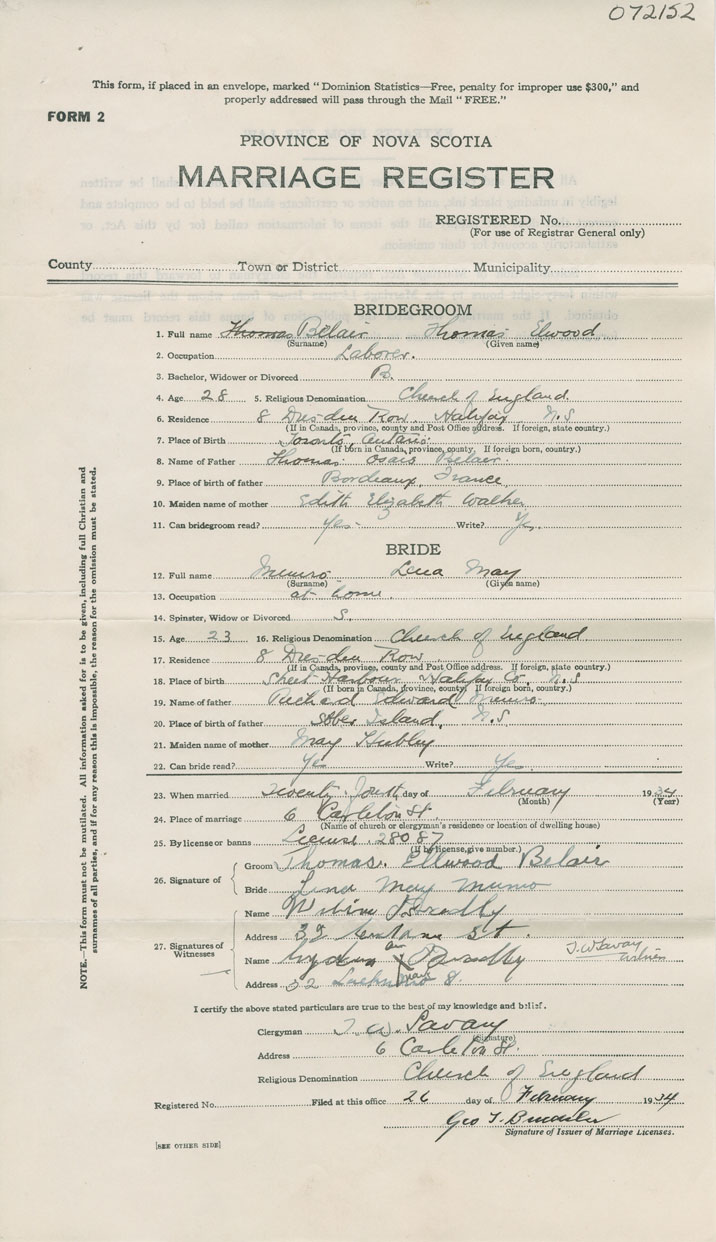 072152
This form, if placed in an envelope, marked “Dominion Statistics—Free, penalty for improper use $300,” and
properly addressed will pass through the Mail “FREE.”
FORM 2
PROVINCE OF NOVA SCOTIA
MARRIAGE REGISTER
REGISTERED No.
(For use of Registrar General only)
County Town or District Municipality
BRIDEGROOM
1. Full name Thomas Belair Thomas Elwood
(Surname) (Given name)
2. Occupation Laborer.
3. Bachelor, Widower or Divorced B.
4. Age 28 5. Religious Denomination Church of England
6. Residence 8 Dresden Row, Halifax N.S
(If in Canada, province, county and Post Office address. If foreign, state country.)
7. Place of Birth Toronto, Ontario.
(If born in Canada, province, county, If foreign born, country.)
8. Name of Father Thomas Belair.
9. Place of birth of father Bordeaux, France
10. Maiden name of mother Edith Elizabeth Walker
11. Can bridegroom read? Yes Write? Yes.
BRIDE
12. Full name Munro Lena May
(Surname) (Given name)
13. Occupation at home.
14. Spinster, Widow or Divorced S.
15. Age 23 16. Religious Denomination Church of England
17. Residence 8 Dresden Row
(If in Canada, province, county and Post Office address. If foreign, state country.)
18. Place of birth Sheet Harbour, Halifax Co. N.S
(If born in Canada, province, county, If foreign born, country.)
19. Name of father Richard Edward Munro
20. Place of birth of father Sober Island, N.S.
21. Maiden name of mother May Hubley
22. Can bride read? Yes Write? Yes.
23. When married Twenty fourth day of February 1934
(Month) (Year)
24. Place of marriage 6 Carleton St.
(Name of church or clergyman's residence or location of dwelling house)
25. By license or banns License. 28087
(If by license, give number.)
26. Signature of Groom Thomas. Ellwood Belair
Bride Lena May Munro
27. Signatures of Witnesses
Name Bradly
Address 32 St.
Name Bradly
J. W Savary
witness
Address 32
I certify the above stated particulars are true to the best of my knowledge and belief.
Clergyman J. W. Savary
(Signature)
Address 6 Carleton St.
Religious Denomination Church of England
Registered No. Filed at this office 26 day of February 1934
Geo T.
Signature of Issuer of Marriage Licenses.
[SEE OTHER SIDE]
NOTE.—This form must not be mutilated. All information asked for is to be given, including full Christian and
surnames of all parties, and if for any reason this is impossible, the reason for the omission must be stated.